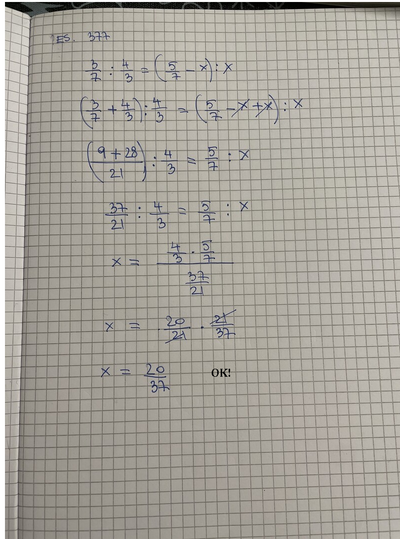 ES. 377
3/7 : 4/3 = (5/7 - x) : x
(3/7 + 4/3) : 4/3 = (5/7 - x + x) : x
((9 + 28)/21) : 4/3 = 5/7 : x
37/21 : 4/3 = 5/7 : x
x = (4/3 · 5/7)/(37/21)
x = 20/21 · 21/37
x = 20/37 OK!